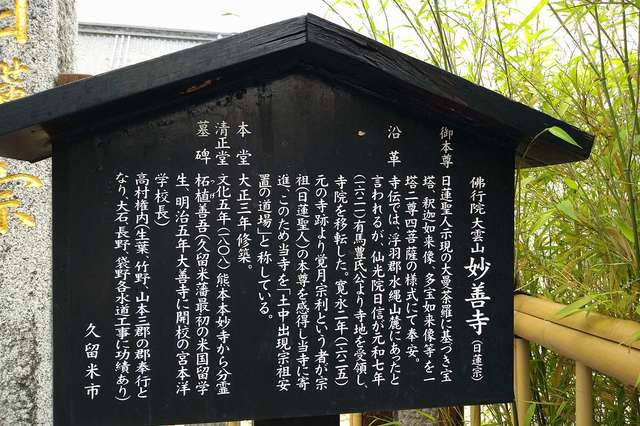 佛行院大雲山妙善寺(日蓮宗)
御本尊 日蓮聖人示現の大曼荼羅に基づき宝
塔、釈迦如来像、多宝如来像等を一
塔二尊四菩薩の様式にて奉安。
沿革 寺伝では、浮羽郡水縄山麓にあったと
言われるが、仙光院日信が元和七年
(一六二一)有馬豊氏公より寺地を受領し、
寺院を移転した。寛永二年(一六二五)
元の寺跡より覚月宗利という者が宗
祖(日蓮聖人)の本尊を感得し当寺に寄
進、このため当寺を「土中出現宗祖安
置の道場」と称している。
本堂 大正三年修築。
清正堂 文化五年(一八〇八)熊本本妙寺から分霊
墓碑 柘植善吾(久留米藩最初の米国留学
生、明治五年大善寺に開校の宮本洋
学校長)
高村権内(生葉、竹野、山本三郡の郡奉行と
なり大石、長野、袋野各水道工事に功績あり)
久留米市
宗